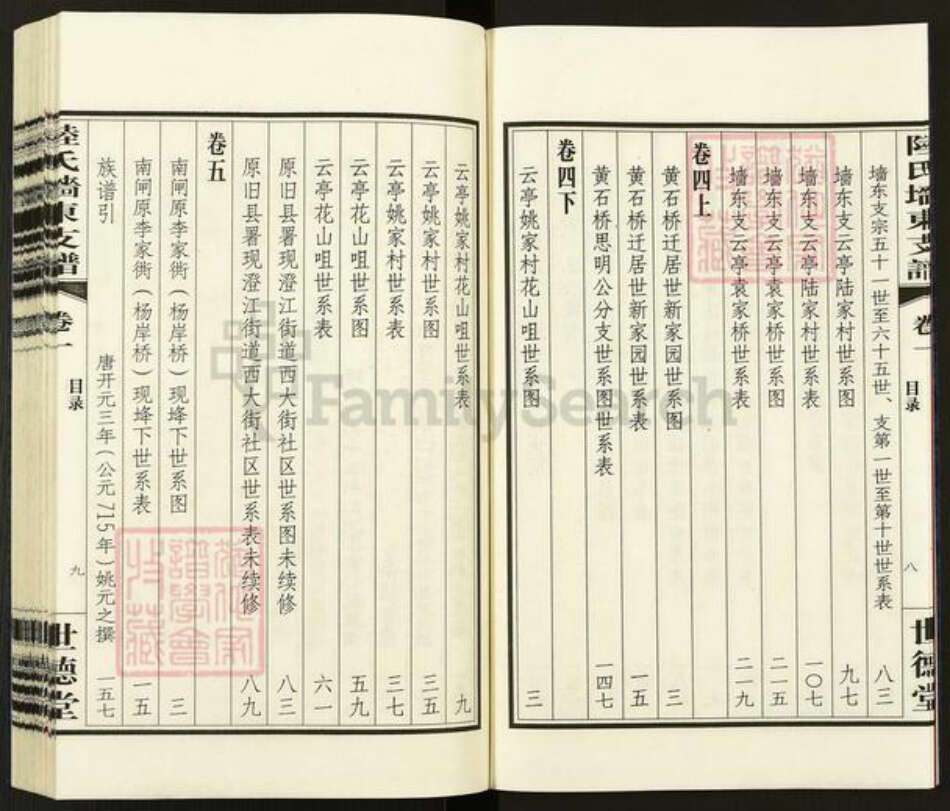 陸氏墙東支譜
卷一
目录
八
世德堂
墙东支宗五十一世至六十五世、支第一世至第十世世系表 八三
墙东支云亭陆家村世系图 九七
墙东支云亭陆家村世系表 一〇七
墙东支云亭袁家桥世系图 二一五
墙东支云亭袁家桥世系表 二一九
卷四上
黄石桥迁居世新家园世系图 三
黄石桥迁居世新家园世系表 一五
黄石桥思明公分支世系图世系表 一四七
卷四下
云亭姚家村花山咀世系图 三
云亭姚家村花山咀世系表 九
云亭姚家村世系图 三五
云亭姚家村世系表 三七
云亭花山咀世系图 五九
云亭花山咀世系表 六一
原旧县署现澄江街道西大街社区世系图未续修 八三
原旧县署现澄江街道西大街社区世系表未续修 八九
卷五
南闸原李家衖（杨岸桥）现埄下世系图 三
南闸原李家衖（杨岸桥）现埄下世系表 一五
族谱引 唐开元三年（公元715年）姚元之撰 一五七
陸氏墙東支譜
卷一
目录
九
世德堂
FamilySearch